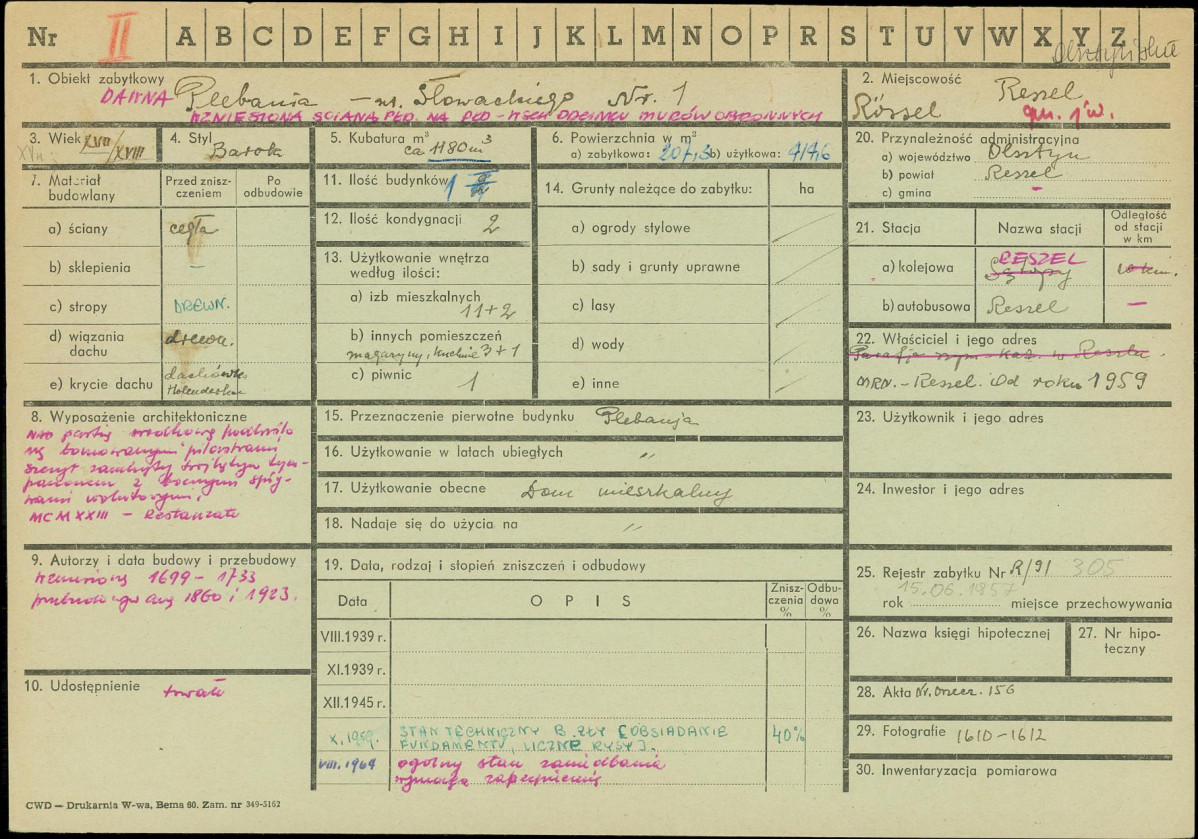 Nr II A B C D E F G H I J K L M N O P R S T U V W X Y Z
1. Obiekt zabytkowy
DAWNA Plebania – ul. Słowackiego Nr. 1
WZNIESIONA ŚCIANĄ PŁD. NA PŁD-WSCH ODCINKU MURÓW OBRONNYCH
2. Miejscowość Reszel
Rössel gm. j/w.
3. Wiek XVII/XVIII
4. Styl Barok
5. Kubatura m³
ca 1180 m³
6. Powierzchnia w m²
a) zabytkowa: 207,3 b) użytkowa:
20. Przynależność administracyjna
a) województwo Olsztyn
b) powiat Reszel
c) gmina –
7. Materiał budowlany
Przed znisz-
czeniem
Po
odbudowie
a) ściany cegła
b) sklepienia –
c) stropy DREWN.
d) wiązania
dachu drewn.
e) krycie dachu dachówka
Holenderka
11. Ilość budynków 1
12. Ilość kondygnacji 2
13. Użytkowanie wnętrza
według ilości:
a) izb mieszkalnych
11+2
b) innych pomieszczeń
magazyny, kuchnie 3+1
c) piwnic 1
14. Grunty należące do zabytku: ha
a) ogrody stylowe
b) sady i grunty uprawne
c) lasy
d) wody
e) inne
21. Stacja
Nazwa stacji
Odległość
od stacji
w km
RESZEL
a) kolejowa Sątopy 10 km.
b) autobusowa Reszel –
22. Właściciel i jego adres
Parafia rzym-kat. w Reszlu.
MRN. – Reszel. Od roku 1959
8. Wyposażenie architektoniczne
NAD partią środkową
szczyt zamknięty trójkątnym tym-
panonem z bocznymi spły-
wami wolutowymi.
MCMXXIII –
15. Przeznaczenie pierwotne budynku Plebanja
16. Użytkowanie w latach ubiegłych "
17. Użytkowanie obecne Dom mieszkalny
18. Nadaje się do użycia na "
23. Użytkownik i jego adres
24. Inwestor i jego adres
9. Autorzy i data budowy i przebudowy
wzniesiony 1699 – 1733
przebudowywany 1860 i 1923.
19. Data, rodzaj i stopień zniszczeń i odbudowy
Data
O P I S
Znisz-
czenia
%
Odbu-
dowa
%
VIII.1939 r.
XI.1939 r.
XII.1945 r.
X. 1959. STAN TECHNICZNY B. ZŁY [OBSIADANIE
FUNDAMENTU, LICZNE RYSY]. 40%
VIII.1964 ogólny stan zaniedbania
wymaga
25. Rejestr zabytku Nr R/91 305
15.06.1957
rok miejsce przechowywania
26. Nazwa księgi hipotecznej
27. Nr hipo-
teczny
10. Udostępnienie trwałe
28. Akta Nr. Orzecz. 156
29. Fotografie 1610–1612
30. Inwentaryzacja pomiarowa
CWD — Drukarnia W-wa, Bema 60. Zam. nr 349-5162